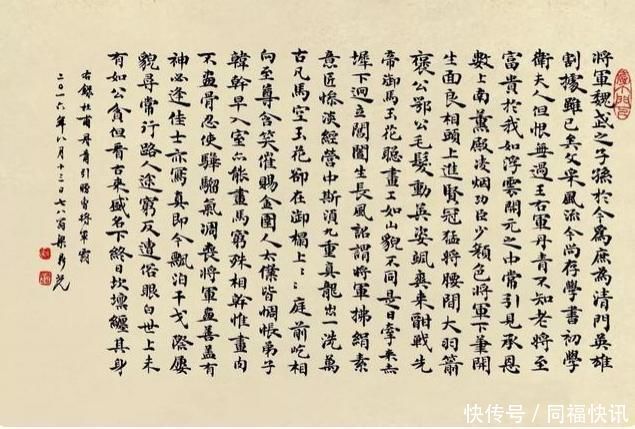 將軍魏武之子孫於今爲庶為清門英雄
割據雖已矣文采風流今尚存學書初學
衛夫人但恨無過王右軍丹青不知老將至
富貴於我如浮雲開元之中常引見承恩
數上南薰殿凌烟功臣少顏色將軍下筆開
生面良相頭上進賢冠猛將腰間大羽箭
褒公鄂公毛髮動英姿颯爽來酣戰先
帝御馬玉花驄畫工如山貌不同是日牽來赤
墀下迥立閶闔生長風詔謂將軍拂絹素
意匠慘淡經營中斯須九重真龍出一洗萬
古凡馬空玉花卻在御榻上:：庭前屹相
向至尊含笑催賜金圉人太僕皆惆悵弟子
韓幹早入室亦能畫馬窮殊相幹惟畫肉
不畫骨忍使驊騮氣凋喪將軍畫善蓋有
神必逢佳士亦寫真即今飄泊干戈際屢
貌尋常行路人途窮反遭俗眼白世上未
有如公貧但看古來盛名下終日坎壈纏其身
右錄杜甫丹青引贈曹將軍霸
二〇一六年八月十三日七八翁梁
快传号／同福快讯